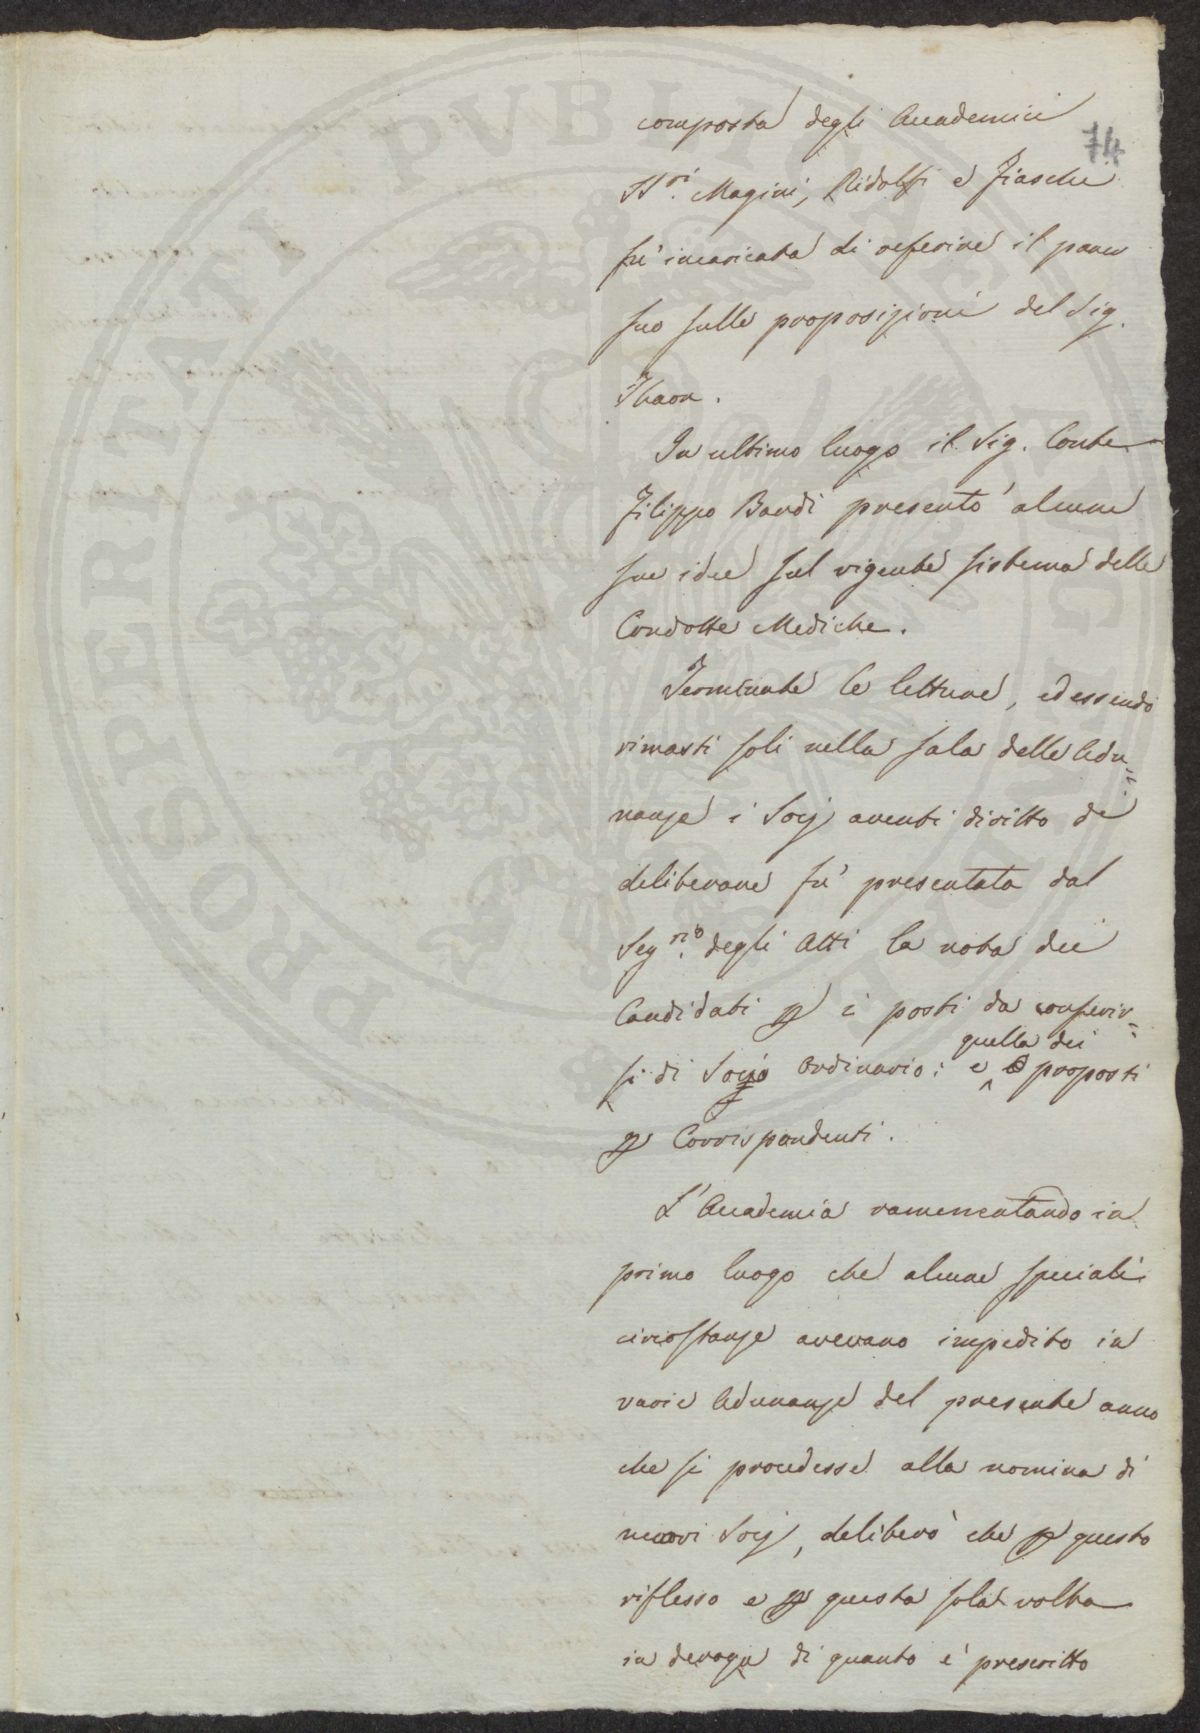 74
composta degli Accademici
SS.ri Magini, Ridolfi e Fiaschi
fu' incaricata di referire il parer
suo sulle proposizioni del Sig.
Thaon.
In ultimo luogo il Sig. Conte
Filippo Bardi presentò alcune
sue idee sul vigente sistema delle
Condotte Mediche.
Terminate le letture, ed essendo
rimasti soli nella sala delle Adu=
nanze i Socj aventi diritto di
deliberare fu' presentata dal
Seg.rio degli Atti la nota dei
Candidati p i posti da conferir=
quella dei
si di Socio Ordinario: e proposti
p Corrispondenti.
L'Accademia ramentando in
primo luogo che alcune speciali
circostanze avevano impedito in
varie Adunanze del presente anno
che si procedesse alla nomina di
nuovi Socj, deliberò che p questo
riflesso e p questa sola volta
in deroga di quanto è prescritto
PROSPERITÀ PUBLICAE